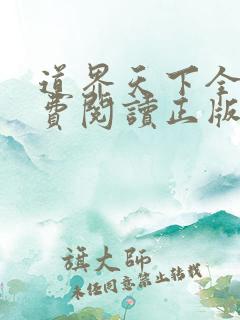 道界天下全
費閱讀正版
旗大师
未经同意禁止转载